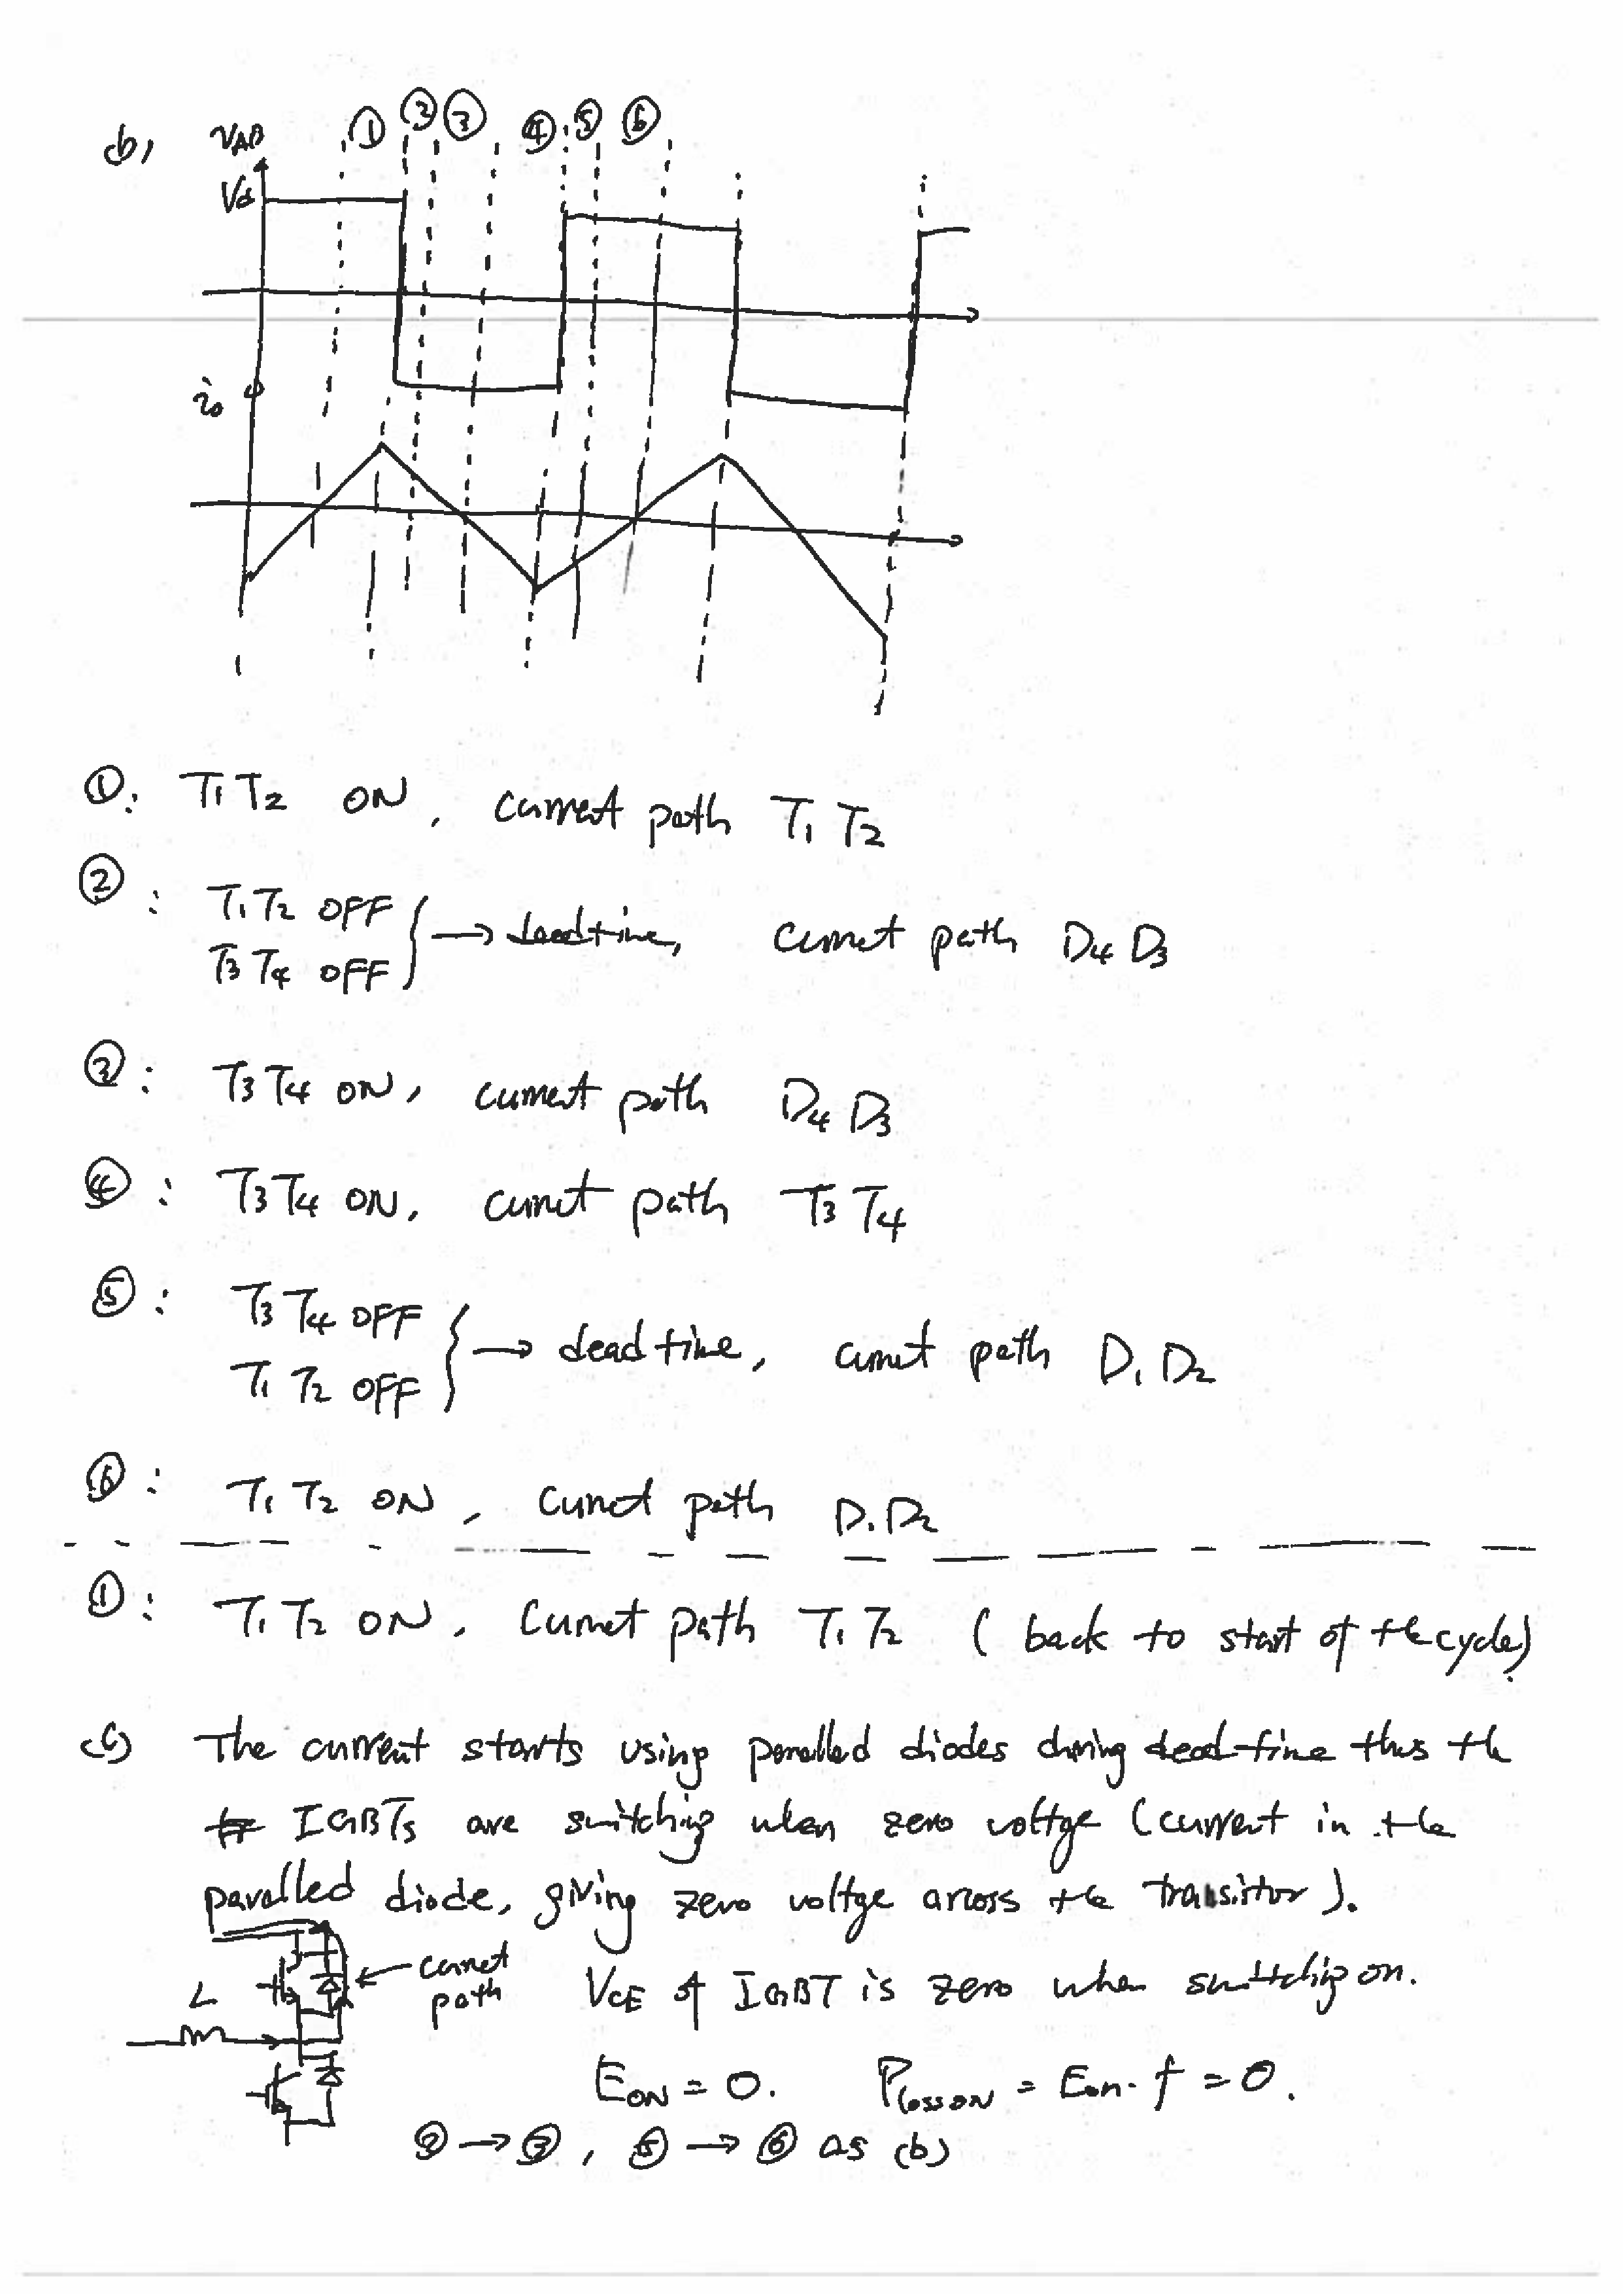 b) VAB ① ② ③ ④ ⑤ ⑥
Vd
io
①: T1 T2 ON, current path T1 T2
②: T1 T2 OFF
T3 T4 OFF → deadtime, current path D4 D3
③: T3 T4 ON, current path D4 D3
④: T3 T4 ON, current path T3 T4
⑤: T3 T4 OFF
T1 T2 OFF → deadtime, current path D1 D2
⑥: T1 T2 ON, current path D1 D2
①: T1 T2 ON, current path T1 T2 (back to start of the cycle).
(c) The current starts using paralled diodes during dead-time thus the
IGBTs are switching when zero voltge (current in the
paralled diode, giving zero voltge across the transistor).
current
path
L
VCE of IGBT is zero when switching on.
EON = 0. PlossON = Eon · f = 0.
② → ③, ⑤ → ⑥ as (b)